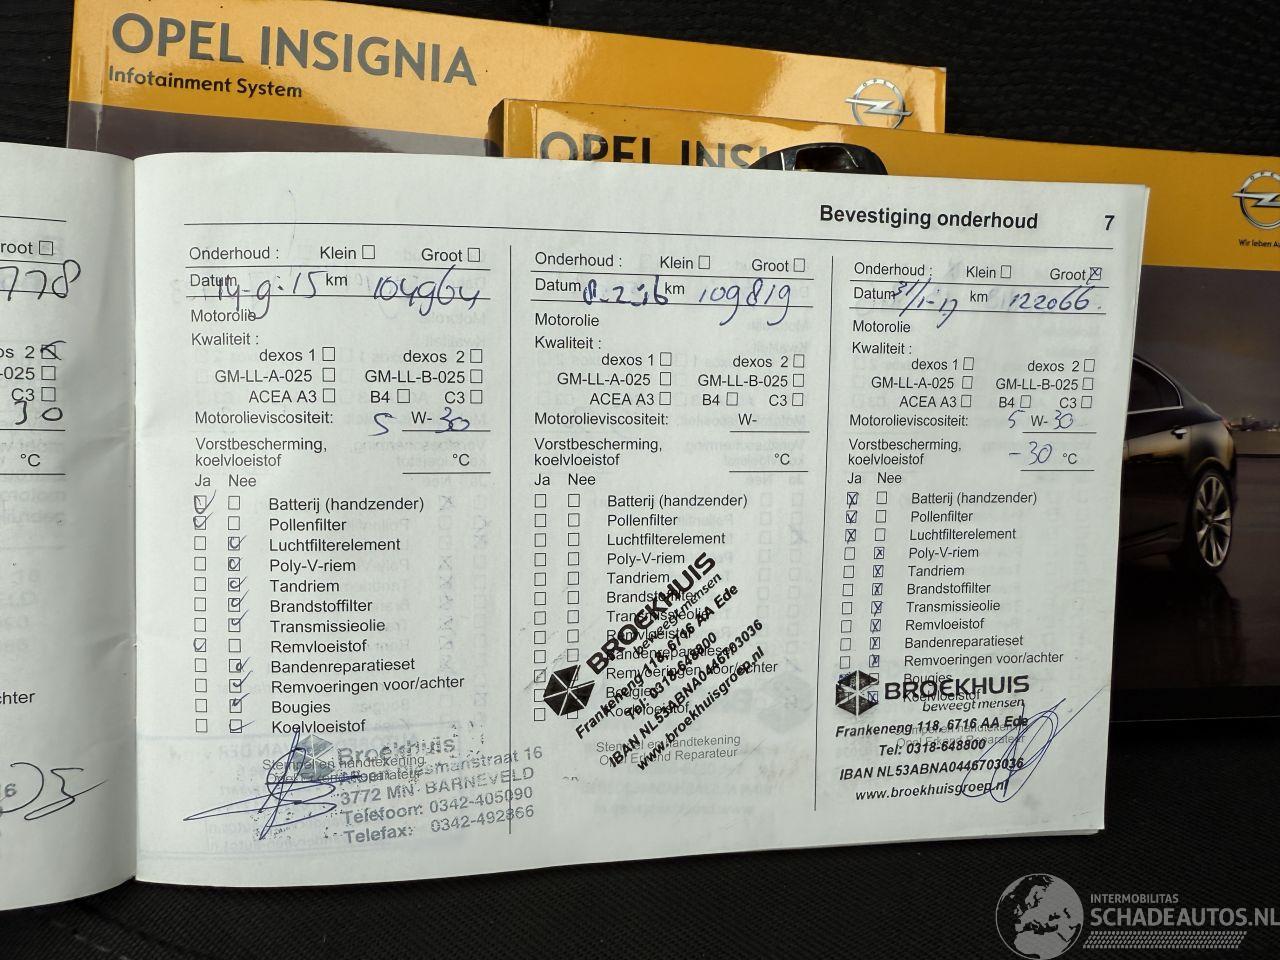 OPEL INSIGNIA
Infotainment System
OPEL INSI
OPEL
Wir leben Au
root
778
os 2
-B-025
C3
30
°C
chter
Bevestiging onderhoud 7
Onderhoud : Klein Groot
Datum 14-9-15 km 104964
Motorolie
Kwaliteit :
dexos 1 dexos 2
GM-LL-A-025 GM-LL-B-025
ACEA A3 B4 C3
Motorolieviscositeit: 5 W- 30
Vorstbescherming,
koelvloeistof °C
Ja Nee
Batterij (handzender)
Pollenfilter
Luchtfilterelement
Poly-V-riem
Tandriem
Brandstoffilter
Transmissieolie
Remvloeistof
Bandenreparatieset
Remvoeringen voor/achter
Bougies
Koelvloeistof
Stempel en handtekening
Opel Erkend Reparateur
Broekhuis
3772 MN BARNEVELD
Telefoon: 0342-405090
Telefax: 0342-492866
Onderhoud : Klein Groot
Datum 8-2-16 km 109819
Motorolie
Kwaliteit :
dexos 1 dexos 2
GM-LL-A-025 GM-LL-B-025
ACEA A3 B4 C3
Motorolieviscositeit: W-
Vorstbescherming,
koelvloeistof °C
Ja Nee
Batterij (handzender)
Pollenfilter
Luchtfilterelement
Poly-V-riem
Tandriem
Brandstoffilter
Transmissieolie
Remvloeistof
Bandenreparatieset
Remvoeringen voor/achter
Bougies
Koelvloeistof
Stempel en handtekening
Opel Erkend Reparateur
BROEKHUIS
beweegt mensen
Frankeneng 118, 6716 AA Ede
Tel: 0318-648800
IBAN NL53ABNA0446703036
www.broekhuisgroep.nl
Onderhoud : Klein Groot
Datum 31/1-17 km 122066.
Motorolie
Kwaliteit :
dexos 1 dexos 2
GM-LL-A-025 GM-LL-B-025
ACEA A3 B4 C3
Motorolieviscositeit: 5 W- 30
Vorstbescherming,
koelvloeistof -30 °C
Ja Nee
Batterij (handzender)
Pollenfilter
Luchtfilterelement
Poly-V-riem
Tandriem
Brandstoffilter
Transmissieolie
Remvloeistof
Bandenreparatieset
Remvoeringen voor/achter
Bougies
Koelvloeistof
Stempel en handtekening
Opel Erkend Reparateur
BROEKHUIS
beweegt mensen
Frankeneng 118, 6716 AA Ede
Tel: 0318-648800
IBAN NL53ABNA0446703036
www.broekhuisgroep.nl
INTERMOBILITAS
SCHADEAUTOS.NL